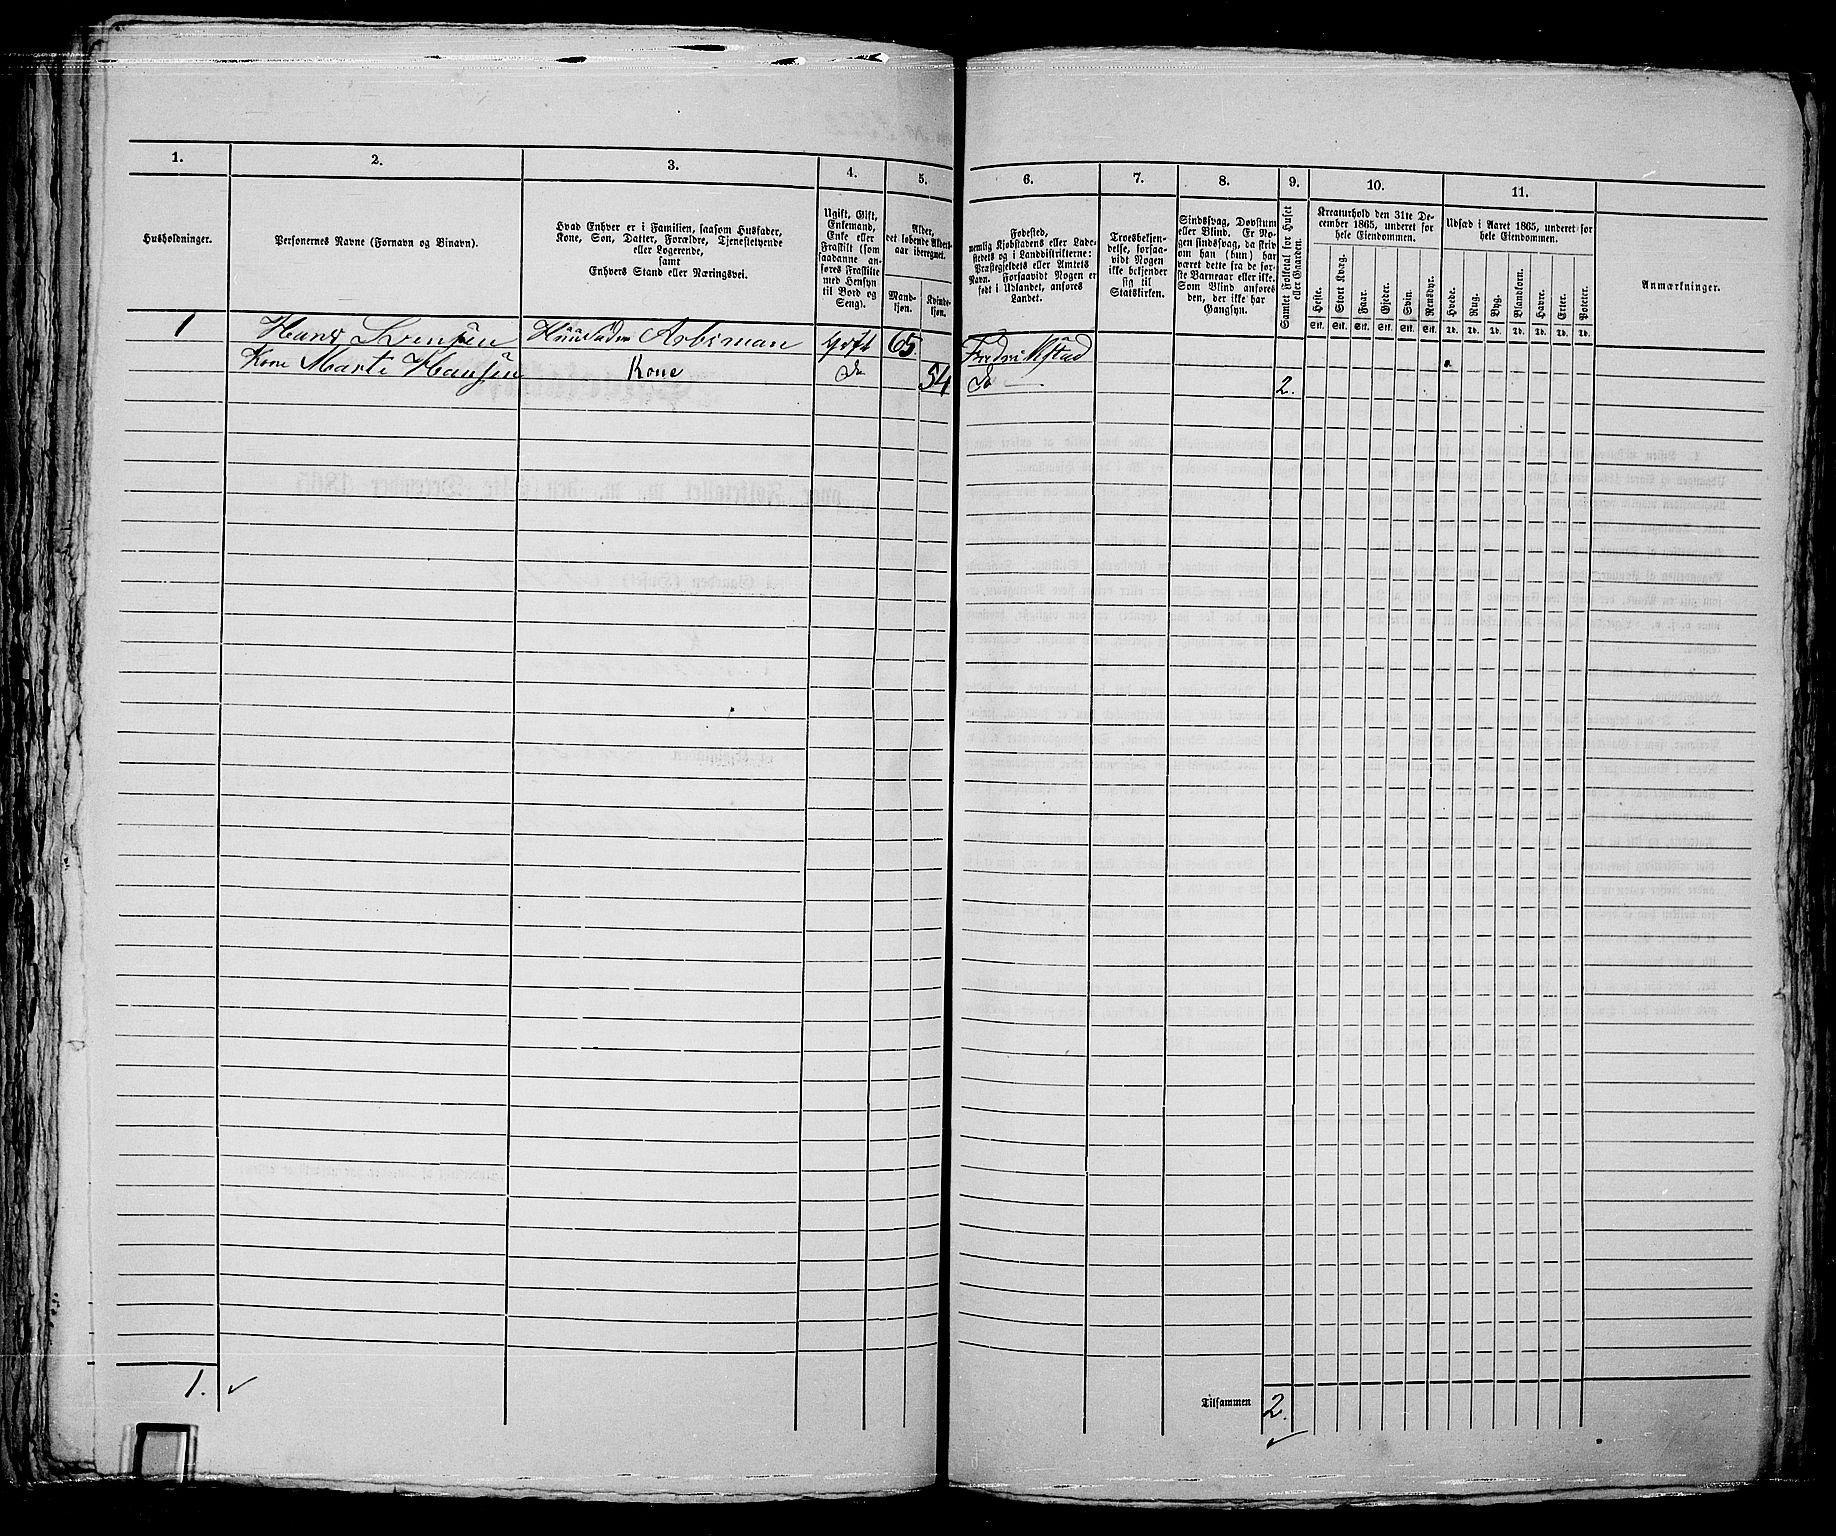 1.
2.
3.
4.
5.
6.
7.
8.
9.
10.
11.
Husholdninger.
Personernes Navne (Fornavn og Binavn).
Hvad Enhver er i Familien, saasom Husfader,
Kone, Søn, Datter, Forældre, Tjenestetyende
eller Logerende,
samt
Enhvers Stand eller Næringsvei.
Ugift, Gift,
Enkemand,
Enke eller
Fraskilt (som
saadanne an-
føres Fraskilte
med Hensyn
til Bord og
Seng).
Alder,
det løbende Alders-
aar iberegnet.
Mand-
kjøn.
Kvinde-
kjøn.
Fødested,
nemlig Kjøbstadens eller Lade-
stedets og i Landdistrikterne:
Præstegjeldets eller Amtets
Navn. Forsaavidt Nogen er
født i Udlandet, anføres
Landet.
Troesbekjen-
delse, forsaa-
vidt Nogen
ikke bekjender
sig til
Statskirken.
Sindssvag, Døvstum
eller Blind. Er No-
gen sindssvag, da skriv
om han (hun) har
været dette fra de før-
ste Barneaar eller ikke.
Som Blind anføres
den, der ikke har
Gangsyn.
Samlet Folketal for Huset
eller Gaarden.
Kreaturhold den 31te De-
cember 1865, underet for
hele Eiendommen.
Heste.
Stort Kvæg.
Faar.
Gjeder.
Svin.
Rensdyr.
Stk. Stk. Stk. Stk. Stk. Stk.
Udsæd i Aaret 1865, underet for
hele Eiendommen.
Hvede.
Rug.
Byg.
Blandkorn.
Havre.
Erter.
Poteter.
Td. Td. Td. Td. Td. Td. Td.
Anmærkninger.
1 Hans Svensen Huusfader Arbsman gift 65. Fredrikstad
Kone Marte Hansen Kone do 54 do 2.
1.
Tilsammen 2.